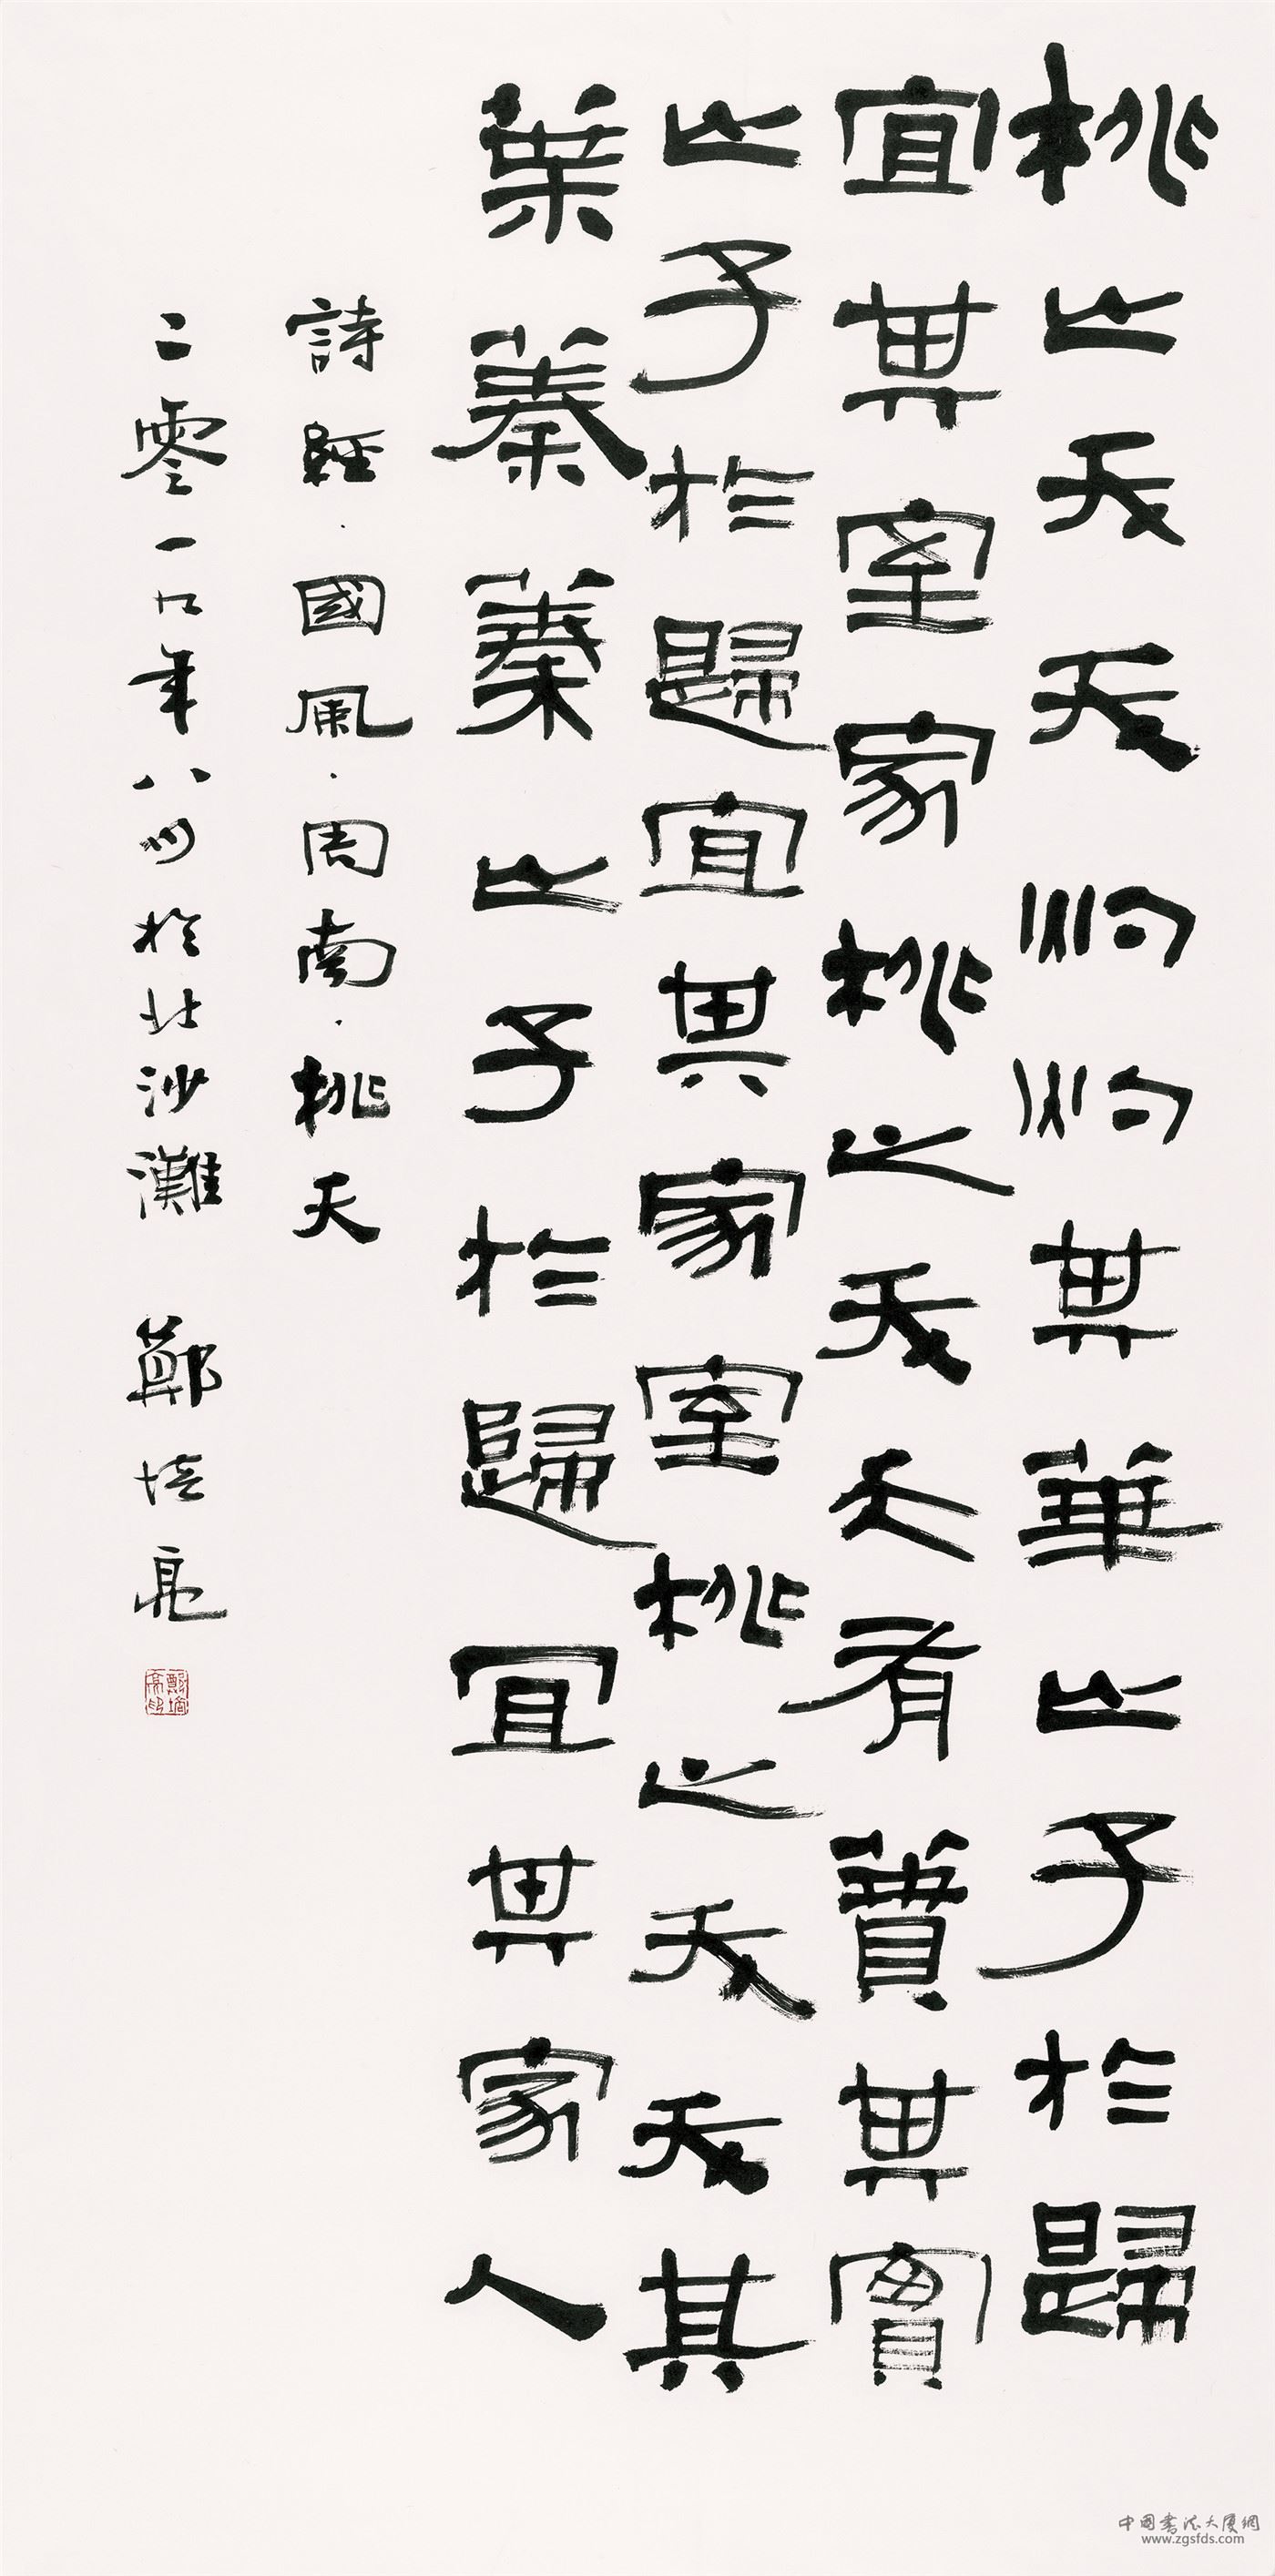 桃之夭夭灼灼其華之子於歸
宜其室家桃之夭夭有蕡其實
之子於歸宜其家室桃之夭夭其
葉蓁蓁之子於歸宜其家人
詩經·國風·周南·桃夭
二零一九年八月於北沙灘 鄭培亮
鄭培亮印
中国书法大厦網
www.zgsfds.com